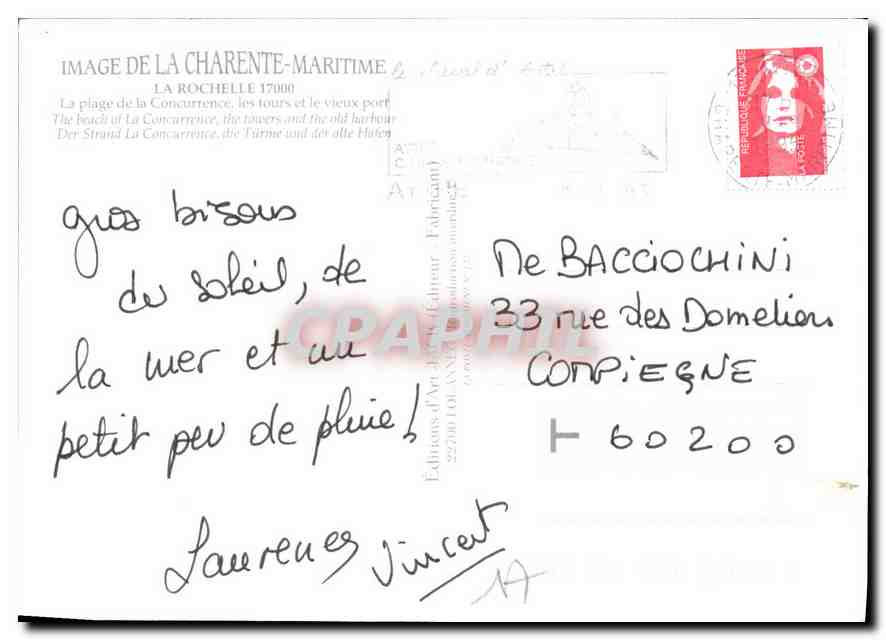 IMAGE DE LA CHARENTE-MARITIME
LA ROCHELLE 17000
La plage de la Concurrence, les tours et le vieux port
The beach of La Concurrence, the towers and the old harbour
Der Strand La Concurrence, die Türme und der alte Hafen
REPUBLIQUE FRANÇAISE
LA POSTE
gros bisous
du soleil, de
la mer et un
petit peu de pluie!
Laurence
Vincent
Me BACCIOCHINI
33 rue des Domeliers
COMPIEGNE
60200
Éditions d'Art
CPAPHIL